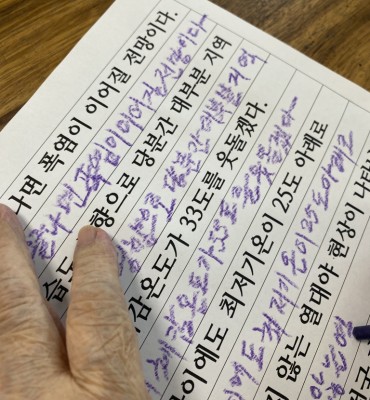 나면 폭염이 이어질 전망이다.
나면 폭염이 이어질 전망이다
습도 향으로 당분간 대부분 지역
향으로 당분간 대부분 지역
감온도가 33도를 웃돌겠다.
체감온도가 33도를 웃돌겠다
사이에도 최저기온이 25도 아래로
이에도 최저기온이 25도 아래로
지 않는 열대야 현상이 나타
않는 열